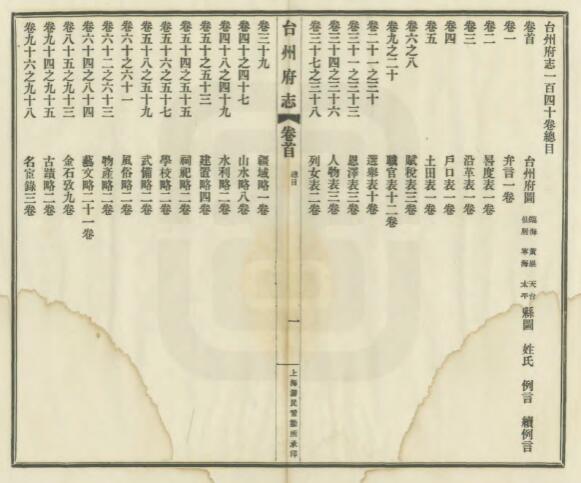 台州府志一百四十卷總目
卷首 台州府圖 臨海 黃巖 天台 仙居 寧海 太平 縣圖 姓氏 例言 續例言
卷一 弁言一卷
卷二 晷度表一卷
卷三 沿革表一卷
卷四 戶口表一卷
卷五 土田表一卷
卷六之八 賦稅表三卷
卷九之二十 職官表十二卷
卷二十一之三十 選舉表十卷
卷三十一之三十三 恩澤表三卷
卷三十四之三十六 人物表三卷
卷三十七之三十八 列女表二卷
台州府志 卷首 總目 一 上海游民習勤所承印
卷三十九 疆域略一卷
卷四十之四十七 山水略八卷
卷四十八之四十九 水利略二卷
卷五十之五十三 建置略四卷
卷五十四之五十五 祠祀略二卷
卷五十六之五十七 學校略二卷
卷五十八之五十九 武備略二卷
卷六十之六十一 風俗略二卷
卷六十二之六十三 物產略二卷
卷六十四之八十四 藝文略二十一卷
卷八十五之九十三 金石攷九卷
卷九十四之九十五 古蹟略二卷
卷九十六之九十八 名宦錄三卷